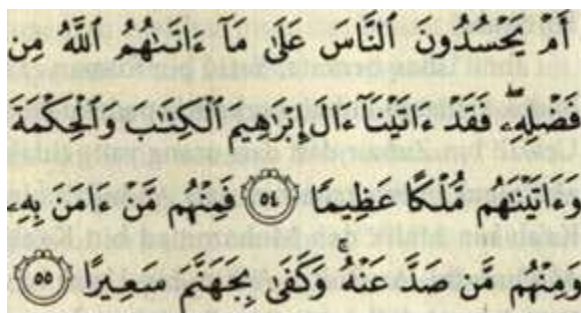 أَمْ يَحْسُدُونَ ٱلنَّاسَ عَلَىٰ مَآ ءَاتَىٰهُمُ ٱللَّهُ مِن
فَضْلِهِۦۖ فَقَدْ ءَاتَيْنَآ ءَالَ إِبْرَٰهِيمَ ٱلْكِتَٰبَ وَٱلْحِكْمَةَ
وَءَاتَيْنَٰهُم مُّلْكًا عَظِيمًا ٥٤ فَمِنْهُم مَّنْ ءَامَنَ بِهِۦ
وَمِنْهُم مَّن صَدَّ عَنْهُۚ وَكَفَىٰ بِجَهَنَّمَ سَعِيرًا ٥٥